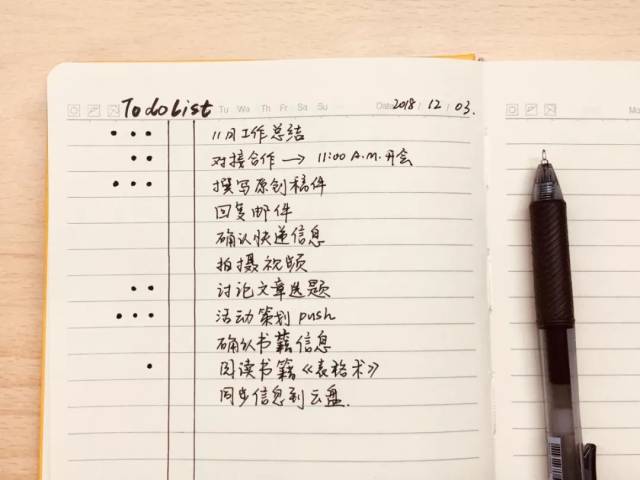 Todo List Tu We Th Fr Sa Su Date 2018 / 12 / 03.
11月工作总结
对接合作 → 11:00 A.M.开会
撰写原创稿件
回复邮件
确认快递信息
拍摄视频
讨论文章选题
活动策划 push
确认书籍信息
阅读书籍《表格术》
同步信息到云盘.